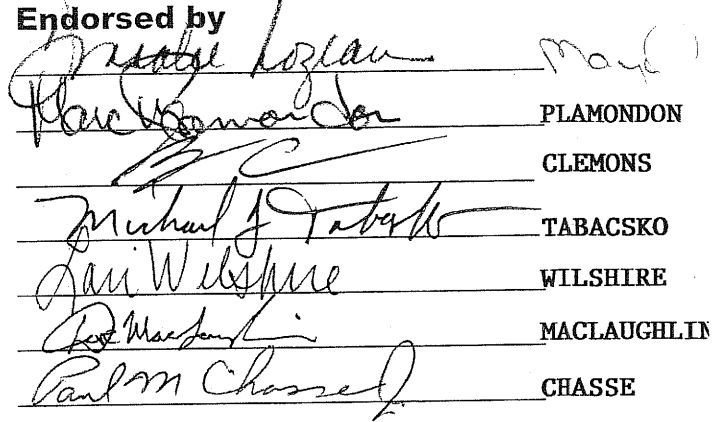 Endorsed by
Lozeau May
Marc Plamondon PLAMONDON
CLEMONS
Michael J Tabacsko TABACSKO
Lori Wilshire WILSHIRE
MacLaughlin MACLAUGHLIN
Paul M Chasse Jr. CHASSE